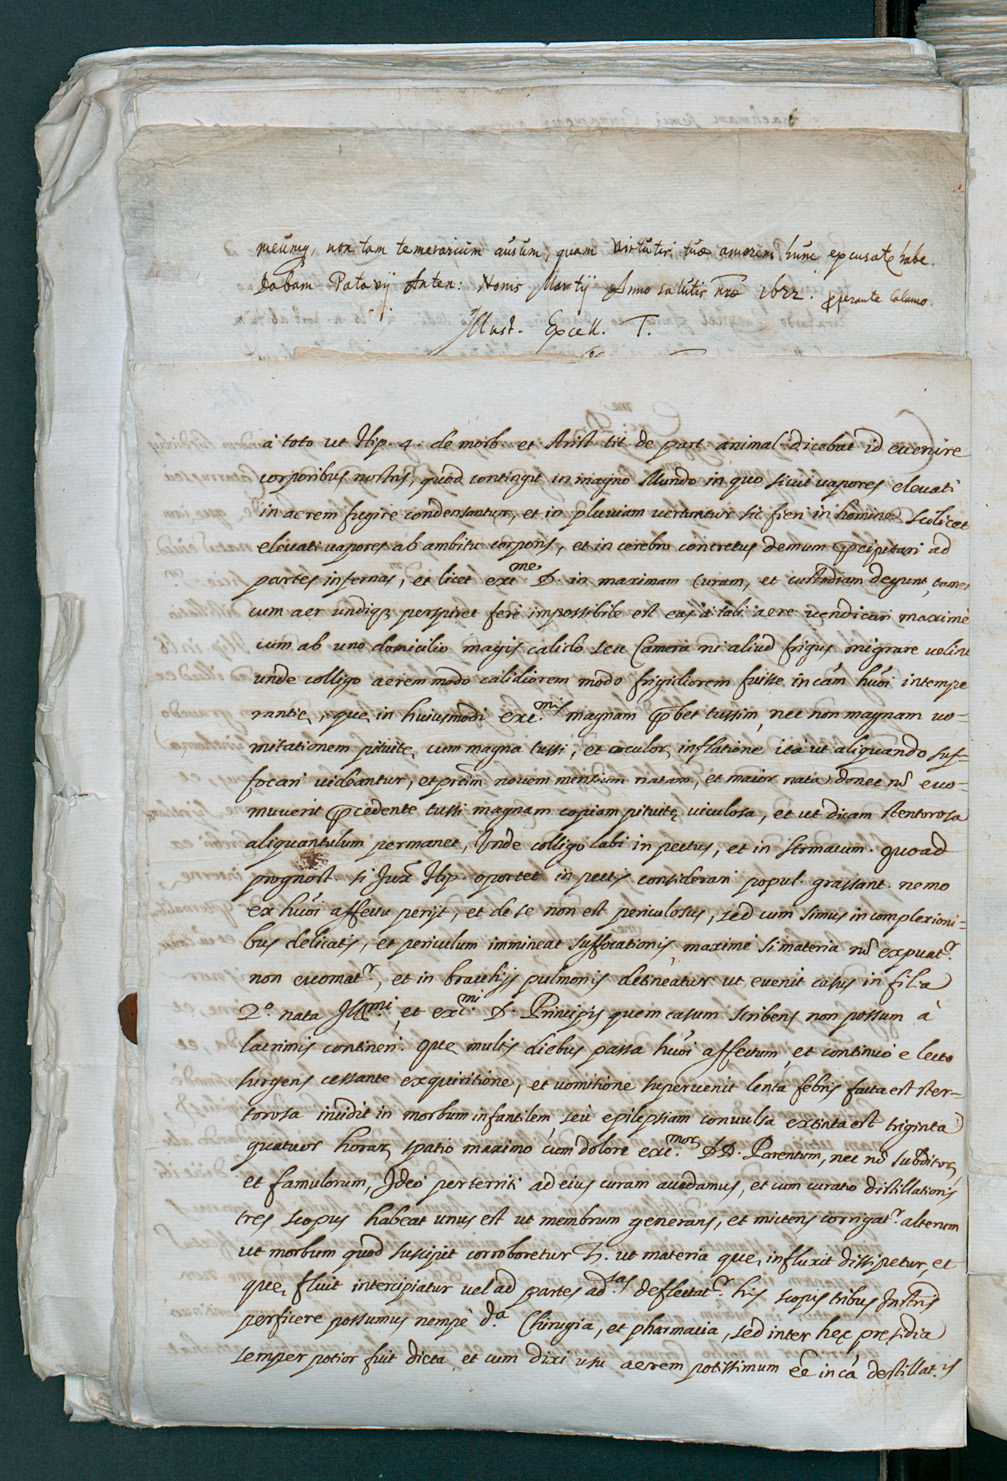 meumq, non tam temerarium ausum, quam virtutis tuæ amorem hunc excusatū habe.
Dabam Patavij Anten: Nonis Martij Anno salutis nræ 1622. properante Calamo.
Illust. Excell. T.
à toto ut Hip. 4. de morb. et Arist. tit. de part. animal. dicebat id evenire
corporibus nostris, quod contingit in magno Mundo in quo sicut vapores elevati
in aerem frigore condensantur, et in pluviam vertuntur sic fieri in homine scilicet
elevati vapores ab ambitu corporis, et in cerebro concretus demum p̄cipitari ad
partes infernas, et licet exc.me D. in maximam curam, et custodiam degunt, tamen
cum aer undiq perspiret ferè impossibile est eas à tali aere vendicari maximè
cum ab uno domicilio magis calido seu Camera ni aliud frigus migrare velint
unde colligo aerem modo calidiorem modo frigidiorem fuisse in cām huōi intempe
rantię, quę, in huiusmodi exc.mis magnam p̄bet tussim, nec non magnam vo-
mitationem pituitę, cum magna tussi, et oculor, inflatione ita ut aliquando suf-
focari videantur, et prīm novem mensium natam, et maior nata donec nō evo-
muverit p̄cedente tussi magnam copiam pituitę viculosa, et ut dicam stentorosa
aliquantulum permanet, Unde colligo labi in pectus, et in stomacum. quoad
prognost. si Juxª Hip. oportet in pectis considerari popul. grassant. nemo
ex huōi affectu perijt, et de se non est periculosus, sed cum simus in complexioni-
bus delicatis, et periculum immineat suffocationis, maximè si materia nō expuatr.
non evomatr., et in bracchijs pulmonis detineatur ut evenit casus in filia
2.ª nata Ill.mi, et exc.mi D. Principis quem casum scribens non possum à
lacrimis contineri. Que multis diebus passa huōi affectum, et continuò e lecto
surgens cessante exquisitione, et vomitione supervenit lenta febris facta est ster-
torosa incidit in morbum infantilem, seù epilepsiam convulsa extinta est triginta
quatuor horar, spatio maximo cum dolore exc.mor DD. Parentum, nec nō subditor,
et famulorum, Ideò perterriti ad eius curam accedamus, et cum curatio distillationis
tres scopus habeat unus est ut membrum generans, et mictens corrigatr. alterum
ut morbum quod suscipit corroboretur 3. ut materia que, influxit dissipetur, et
que, fluit intercipiatur vel ad partes ad.sas deflectatr. his scopis tribus Instris
perficere possumus nempè d.a Chirugia, et pharmacia, sed inter hęc pręsidia
semper potior fuit dicta, et cum dixi usu aerem potissimum eē in cā destillat.is